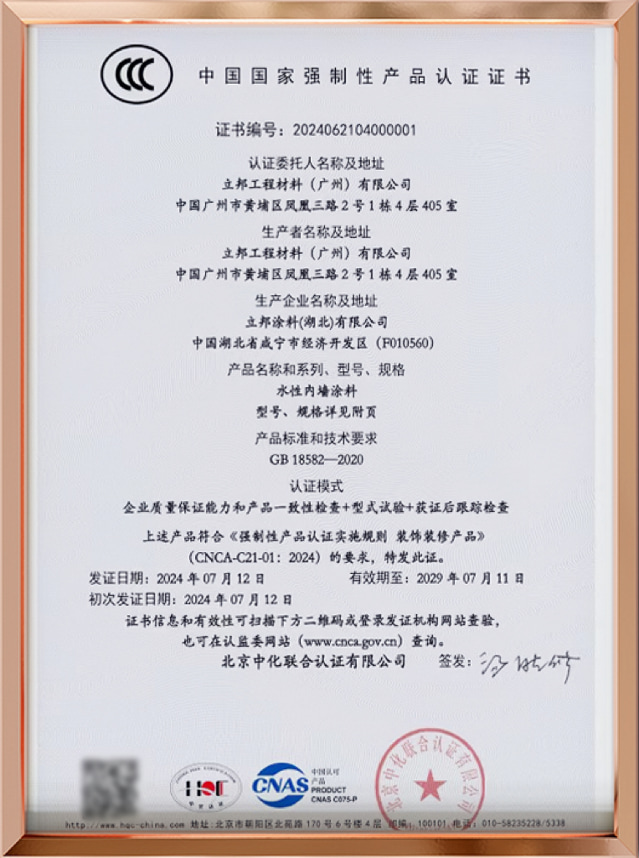 中国国家强制性产品认证证书
证书编号：2024062104000001
认证委托人名称及地址
立邦工程材料（广州）有限公司
中国广州市黄埔区凤凰三路2号1栋4层405室
生产者名称及地址
立邦工程材料（广州）有限公司
中国广州市黄埔区凤凰三路2号1栋4层405室
生产企业名称及地址
立邦涂料(湖北)有限公司
中国湖北省咸宁市经济开发区（F010560）
产品名称和系列、型号、规格
水性内墙涂料
型号、规格详见附页
产品标准和技术要求
GB 18582—2020
认证模式
企业质量保证能力和产品一致性检查+型式试验+获证后跟踪检查
上述产品符合《强制性产品认证实施规则 装饰装修产品》
（CNCA-C21-01：2024）的要求，特发此证。
发证日期：2024年07月12日 有效期至：2029年07月11日
初次发证日期：2024年07月12日
证书信息和有效性可扫描下方二维码或登录发证机构网站查验，
也可在认监委网站（www.cnca.gov.cn）查询。
北京中化联合认证有限公司 签发：
北京中化联合认证有限公司
HQC
CNAS
中国认可
产品
PRODUCT
CNAS C075-P
http://www.hqc-china.com 地址:北京市朝阳区北苑路170号6号楼4层 邮编：100101 电话：010-58235228/5338